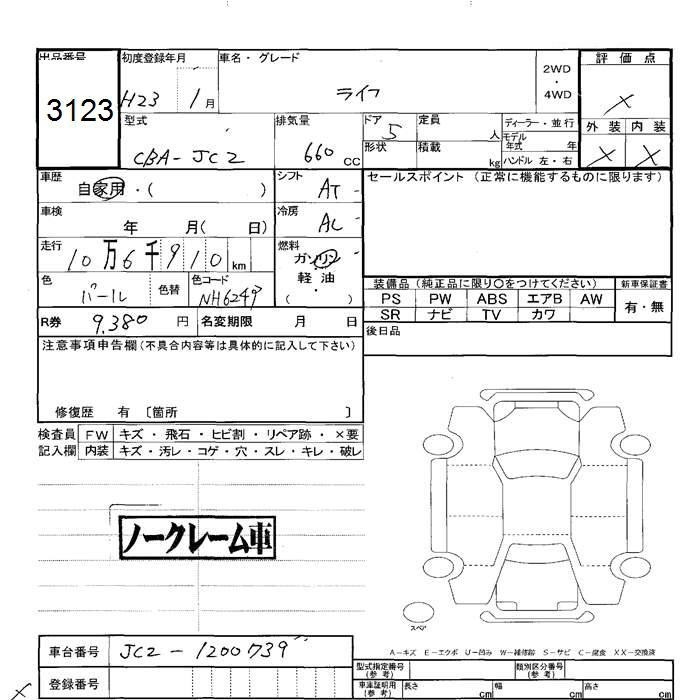 出品番号
3123
初度登録年月
H23 1月
車名・グレード
ライフ
2WD
・
4WD
評価点
×
外装 内装
× ×
型式
CBA-JC2
排気量
660 cc
ドア
5
定員
人
ディーラー・並行
モデル
年式 年
形状
積載
kg
ハンドル 左・右
車歴
自家用・( )
シフト
AT
セールスポイント (正常に機能するものに限ります)
車検
年 月( 日)
冷房
AC
走行
10万6千910km
燃料
ガソリン
軽油
( )
色
パール
色替
色コード
装備品 (純正品に限り○をつけてください)
新車保証書
PS PW ABS エアB AW
有・無
SR ナビ TV カワ
R券 9,380 円
名変期限 月 日
後日品
注意事項申告欄 (不具合内容等は具体的に記入して下さい)
修復歴 有 〔箇所 〕
検査員 FW キズ・飛石・ヒビ割・リペア跡・×要
記入欄 内装 キズ・汚レ・コゲ・穴・スレ・キレ・破レ
ノークレーム車
スペア
A-キズ E-エクボ U-凹み W-補修跡 S-サビ C-腐食 XX-交換済
車台番号 JC2-1200739
登録番号
型式指定番号
(参考)
類別区分番号
(参考)
車庫証明用
(参考)
長さ cm 幅 cm 高さ cm